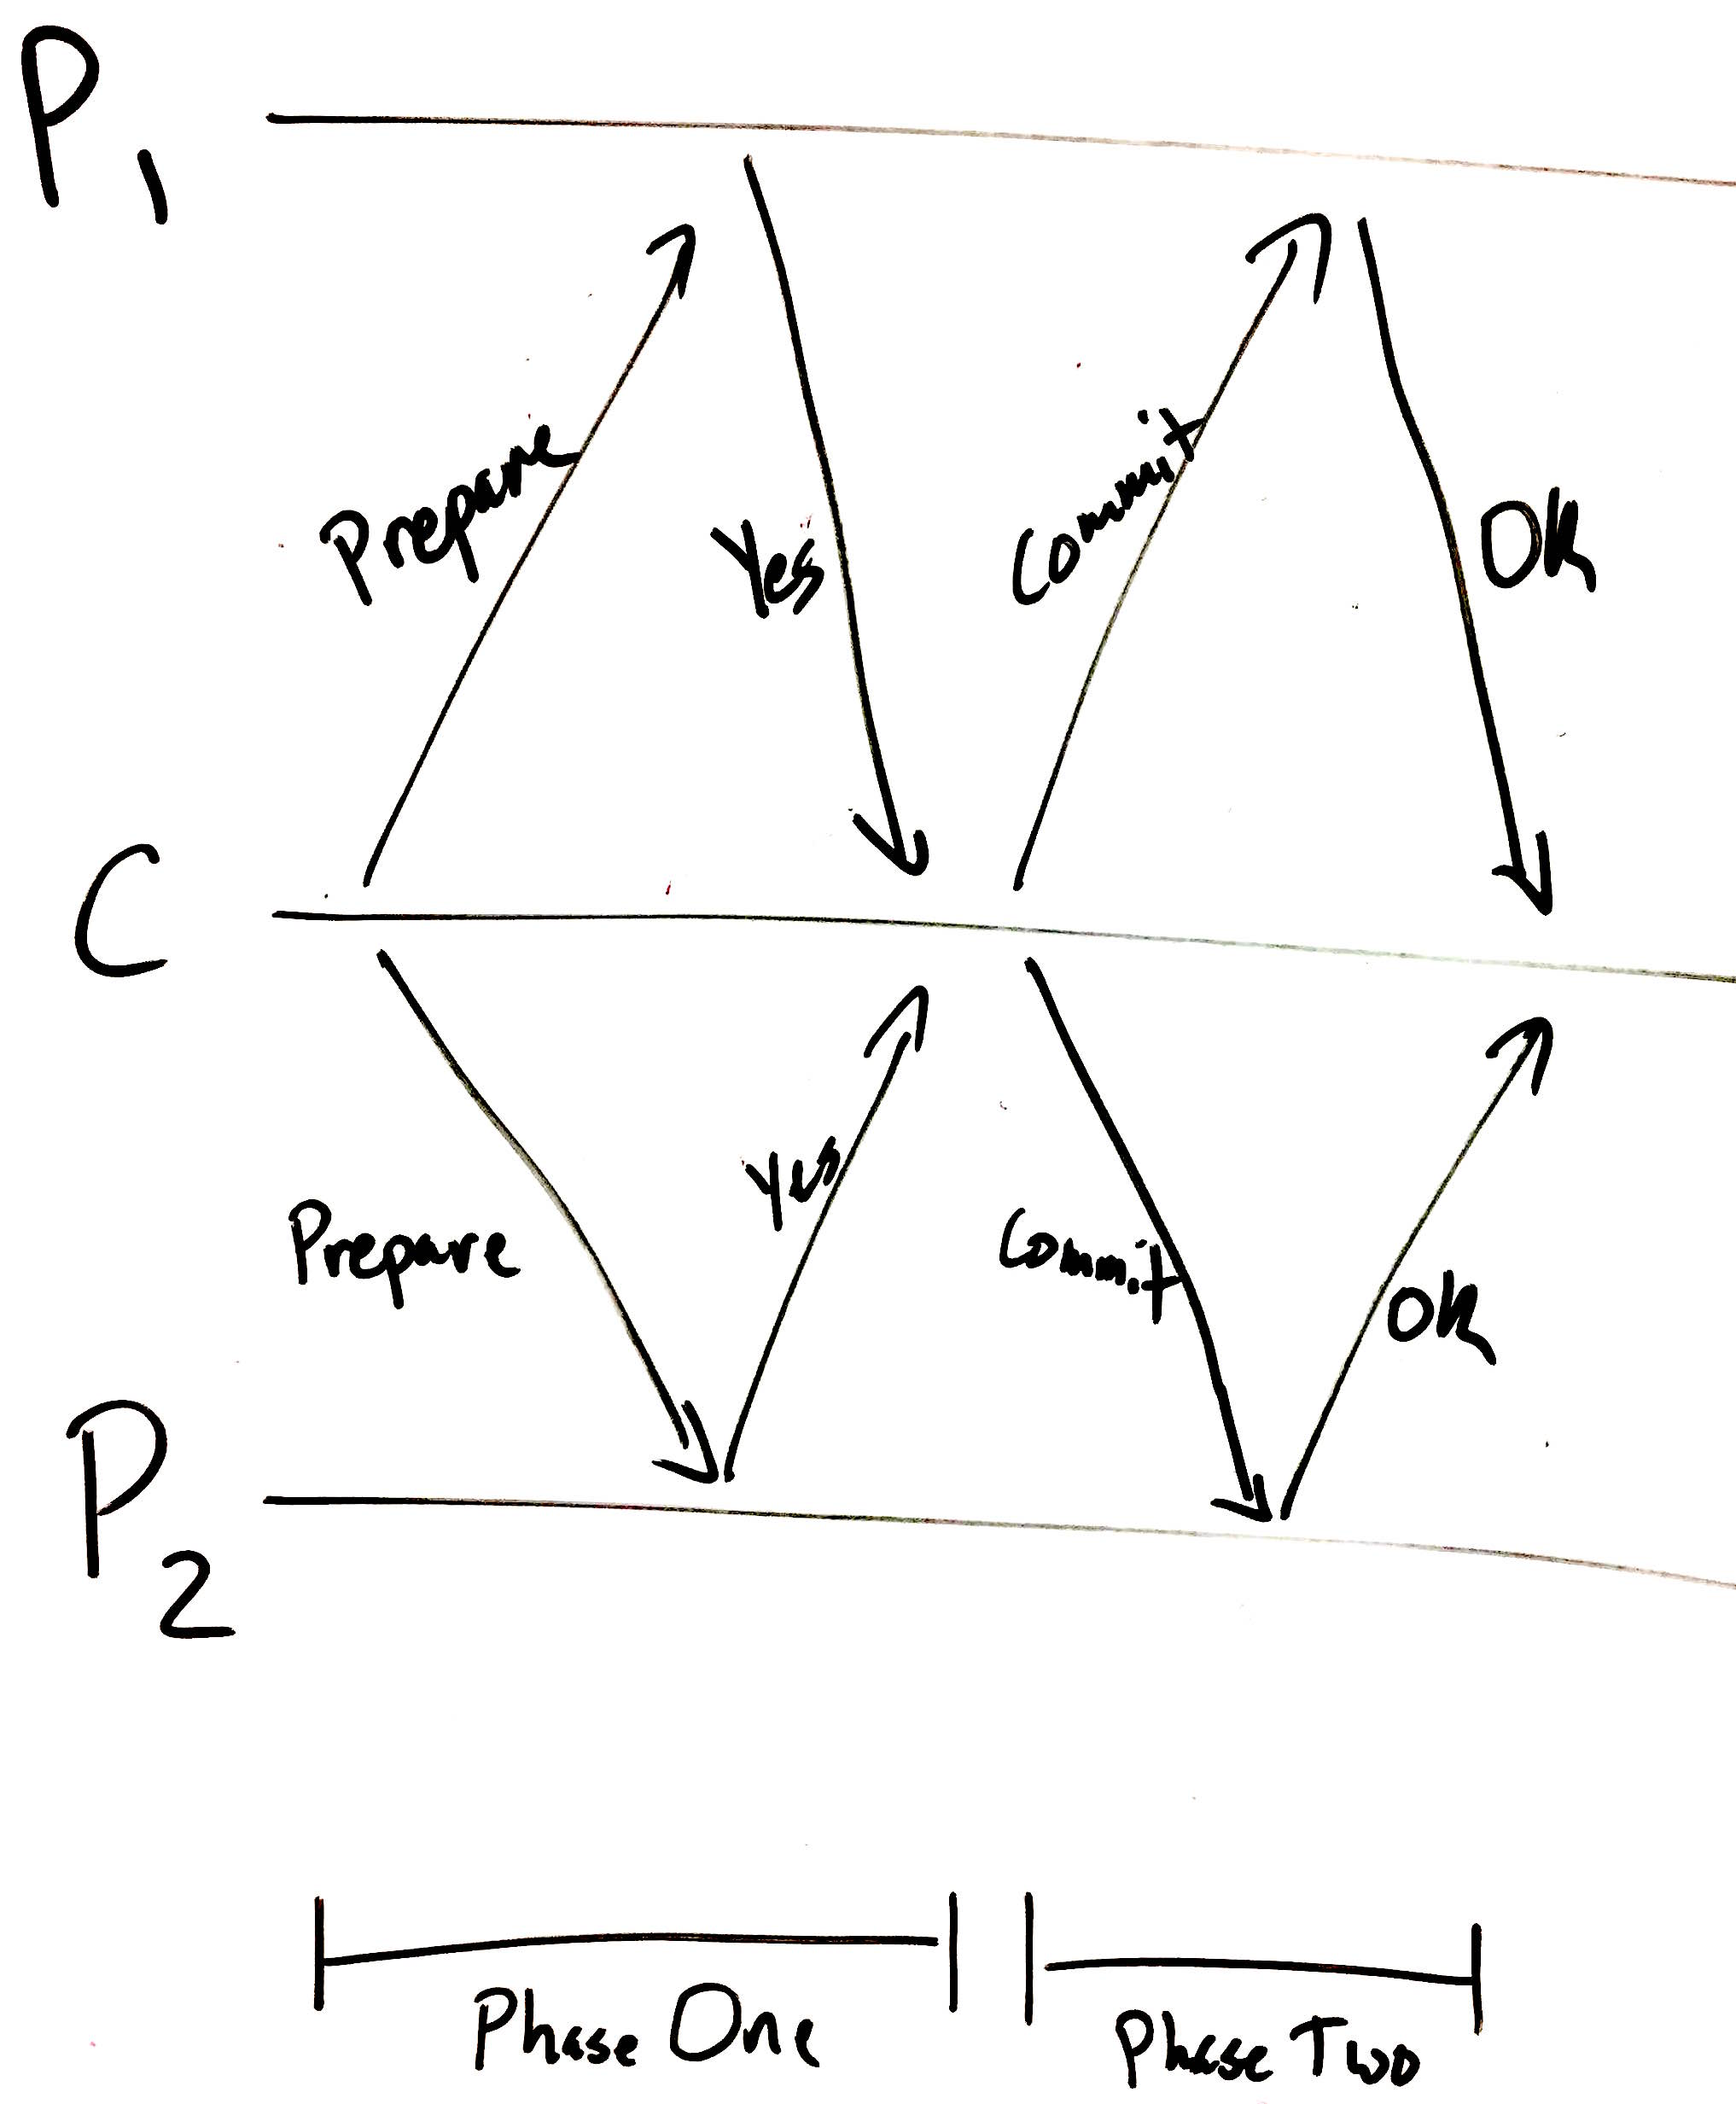 P1
Prepare
Yes
Commit
OK
C
Prepare
Yes
Commit
OK
P2
Phase One
Phase Two